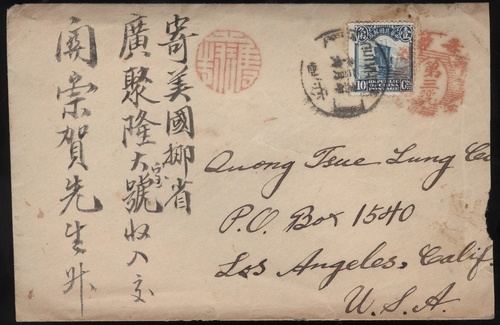 寄美國挪省
廣聚隆大寶號收入交
關崇賀先生升
Quong Tsue Lung Co
P.O. Box 1540
Los Angeles, Calif.
U.S.A.
10
第三